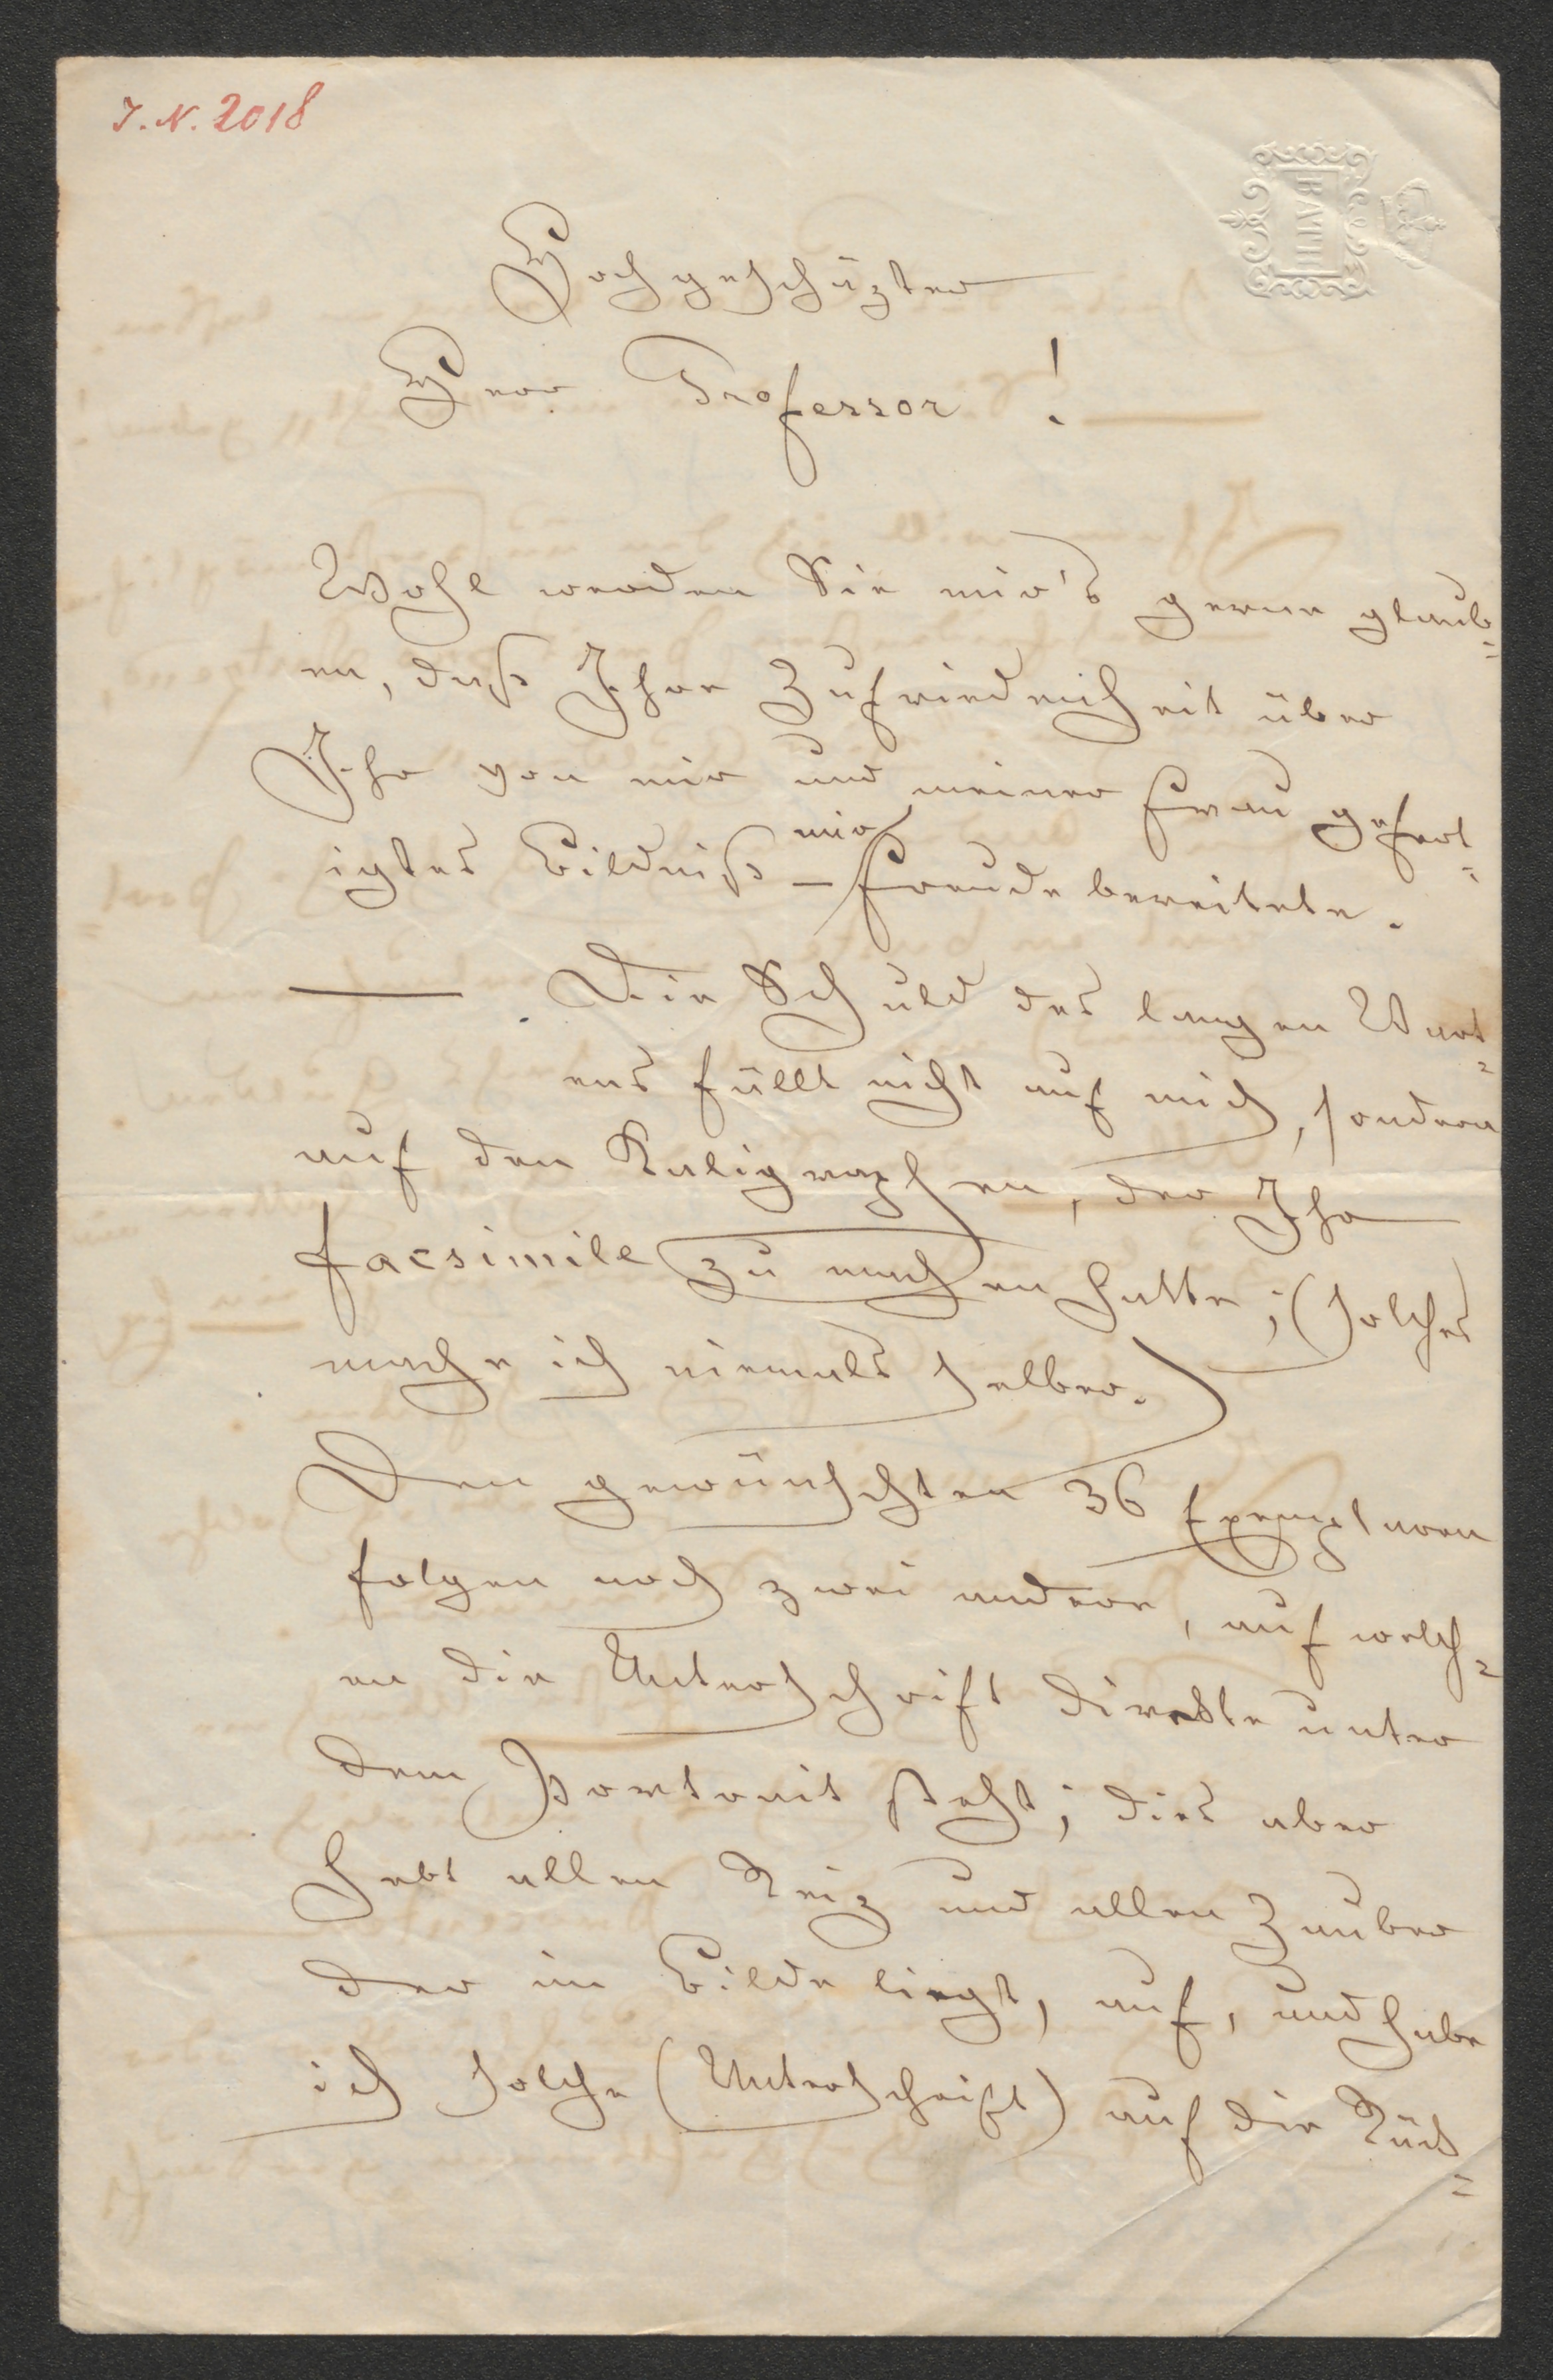 I. N. 2018
BATH
Hochgeschäzter
Herr Professor!
Wohl werden Sie mir's gerne glaub=
en, daß Ihre Zufriedenheit über
Ihr von mir und meiner Frau gefert=
igtes Bildniß – mir Freude bereitete.
— Die Schuld des langen Wart=
ens fällt nicht auf mich, sondern
auf den Kaligraphen, der Ihr
facsimile zu machen hatte; (solches
mache ich niemals selber.)
Den gewünschten 36 Exemplaren
folgen noch zwei andere, auf welch=
en die Unterschrift direkte unter
dem Portrait steht; dies aber
hebt allen Reiz und allen Zauber
der im Bilde liegt, auf, und habe
ich solche (Unterschrift) auf die Rück=